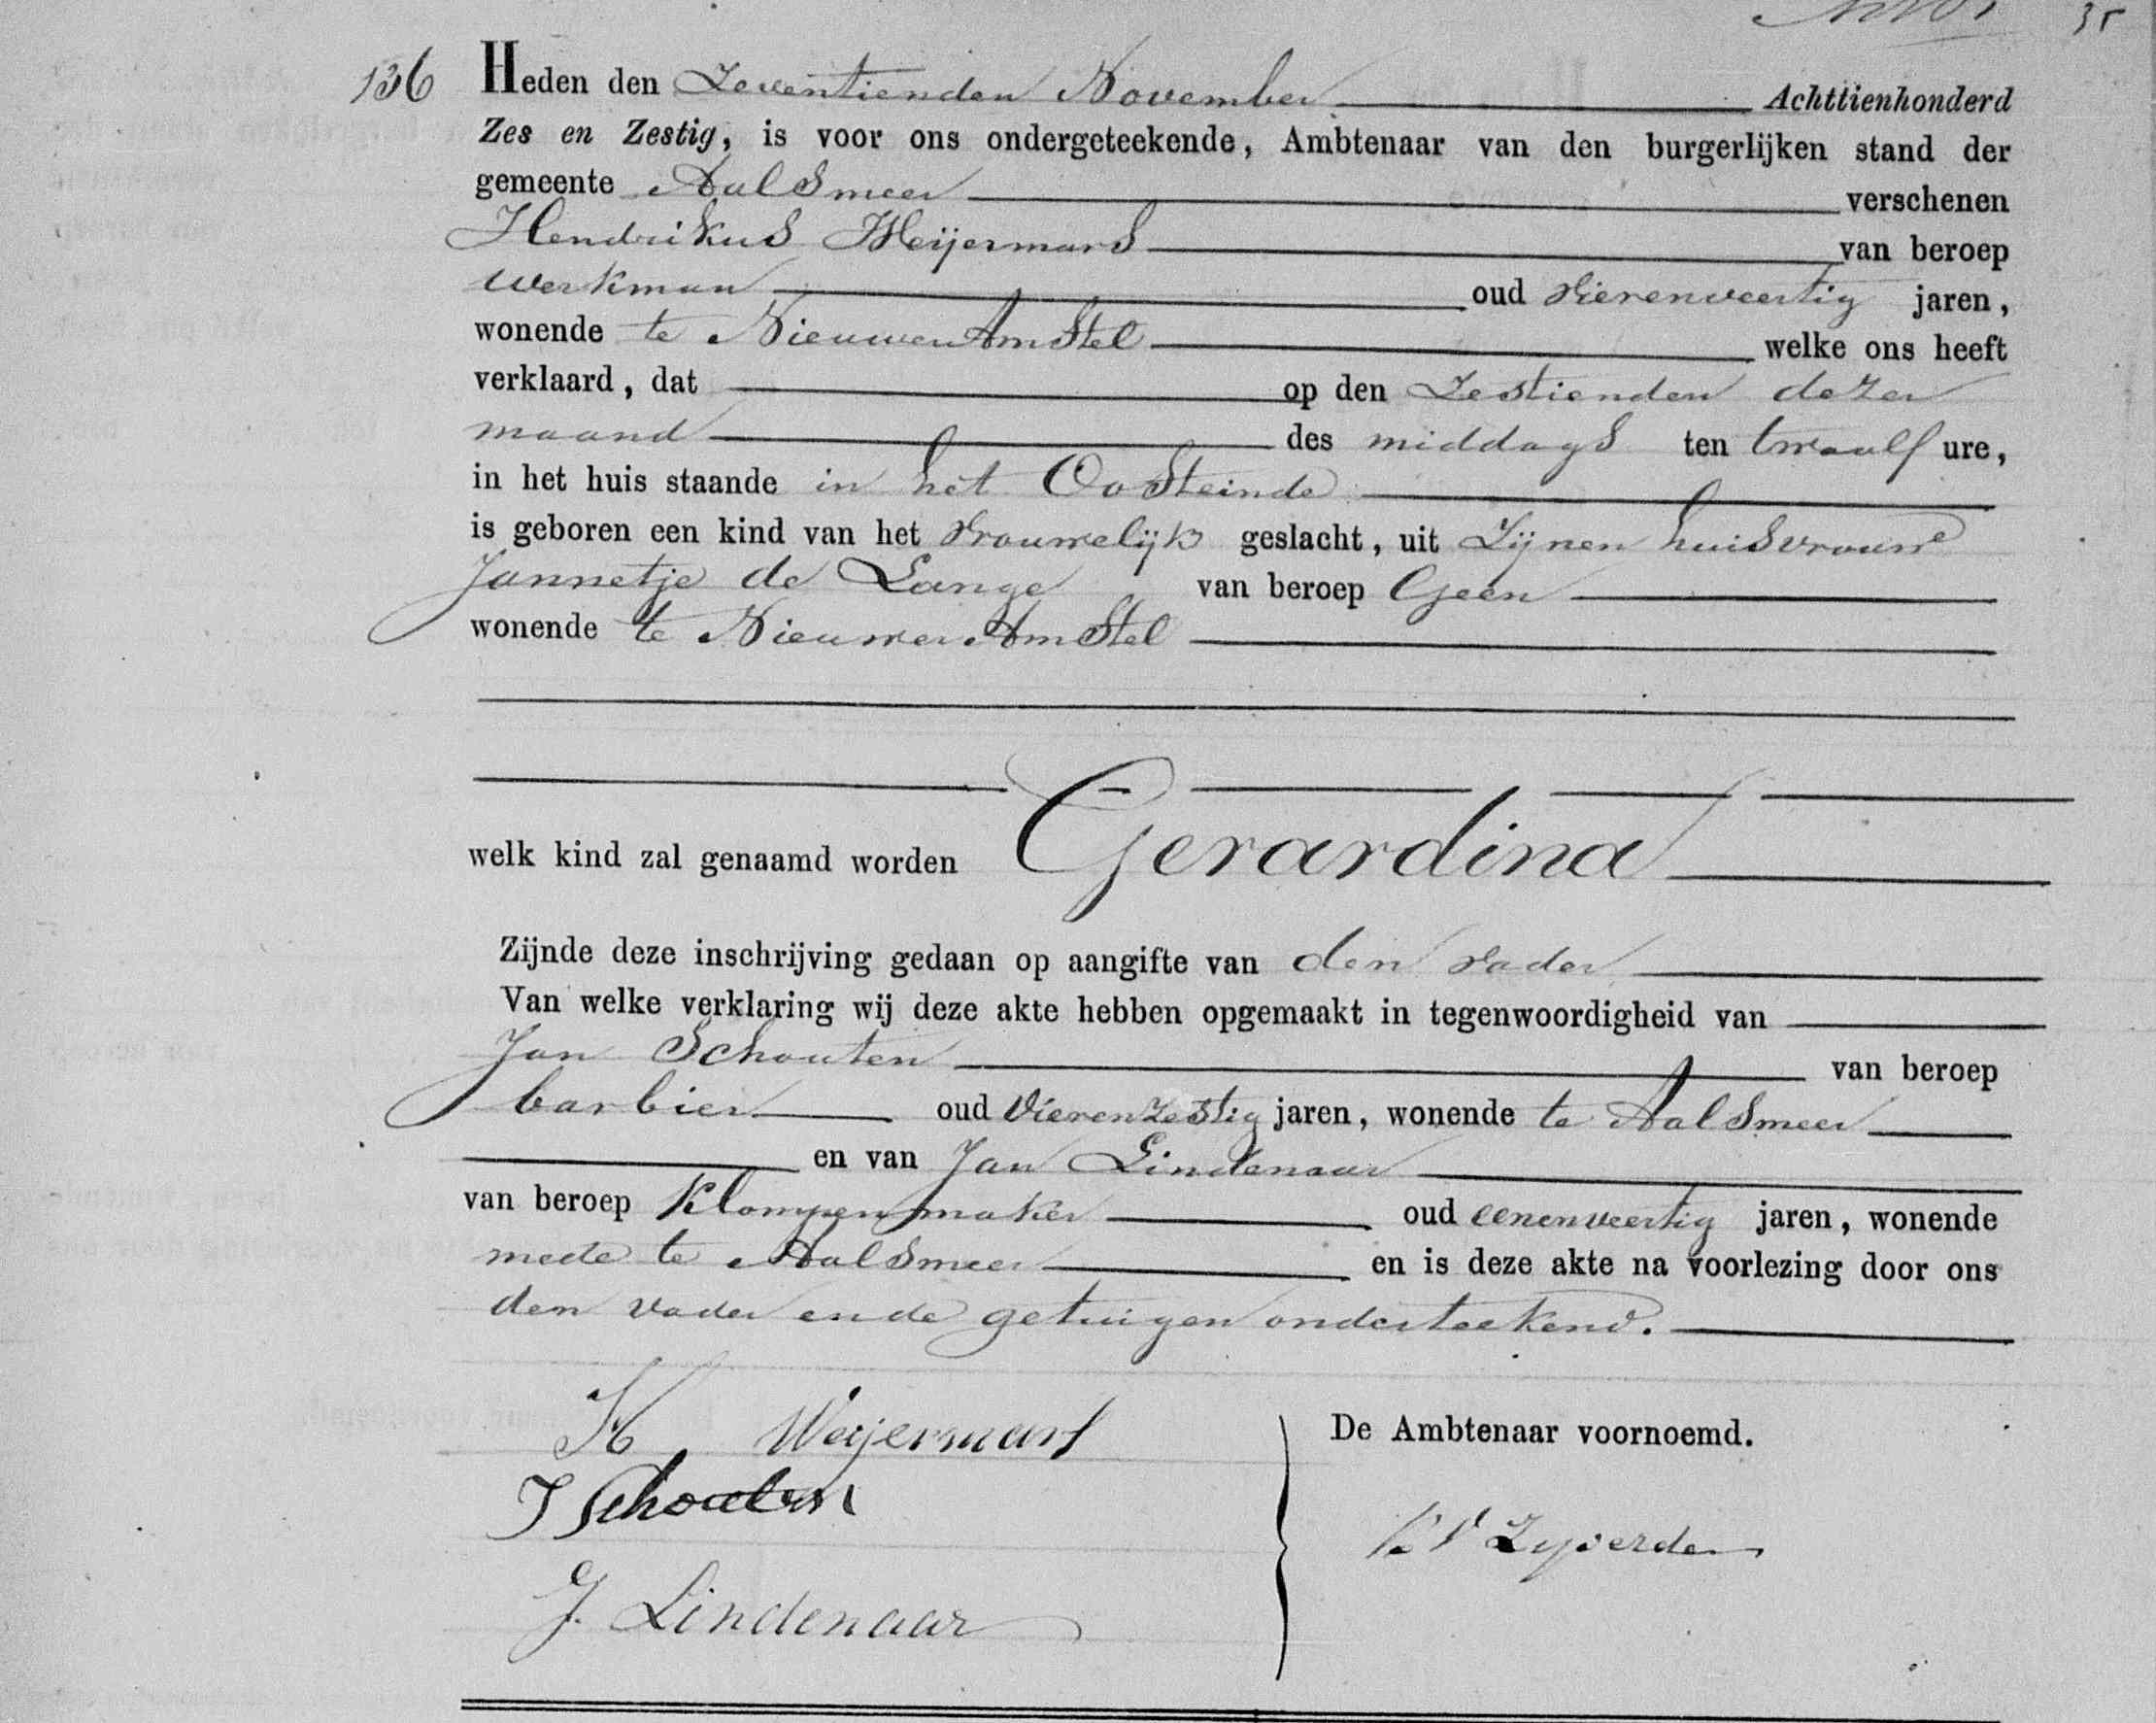 35
136 Heden den Zeventienden November Achttienhonderd
Zes en Zestig, is voor ons ondergeteekende, Ambtenaar van den burgerlijken stand der
gemeente Aalsmeer verschenen
Hendrikus Meijermars van beroep
werkman oud vierenveertig jaren,
wonende te Nieuwer Amstel welke ons heeft
verklaard, dat op den Zestienden dezer
maand des middags ten twaalf ure,
in het huis staande in het Oosteinde
is geboren een kind van het vrouwelijk geslacht, uit Zijnen huisvrouwe
Jannetje de Lange van beroep Geen
wonende te Nieuwer Amstel
welk kind zal genaamd worden Gerardina
Zijnde deze inschrijving gedaan op aangifte van den vader
Van welke verklaring wij deze akte hebben opgemaakt in tegenwoordigheid van
Jan Schouten van beroep
barbier oud Vierenzestig jaren, wonende te Aalsmeer
en van Jan Lindenaar
van beroep Klompenmaker oud eenenveertig jaren, wonende
mede te Aalsmeer en is deze akte na voorlezing door ons
den vader en de getuigen onderteekend.
H Meijermars
De Ambtenaar voornoemd.
J Schouten
J. Lindenaar